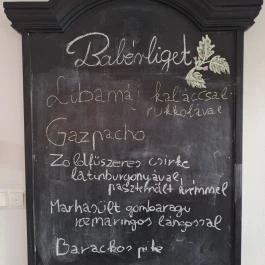 Babérliget
Libamáj kaláccsal
rukkolával
Gazpacho
Zöldfűszeres csirke
latinburgonyával,
paszternák krémmel
Marhasült gombaragu
rozmaringos lángossal
Barackos pite